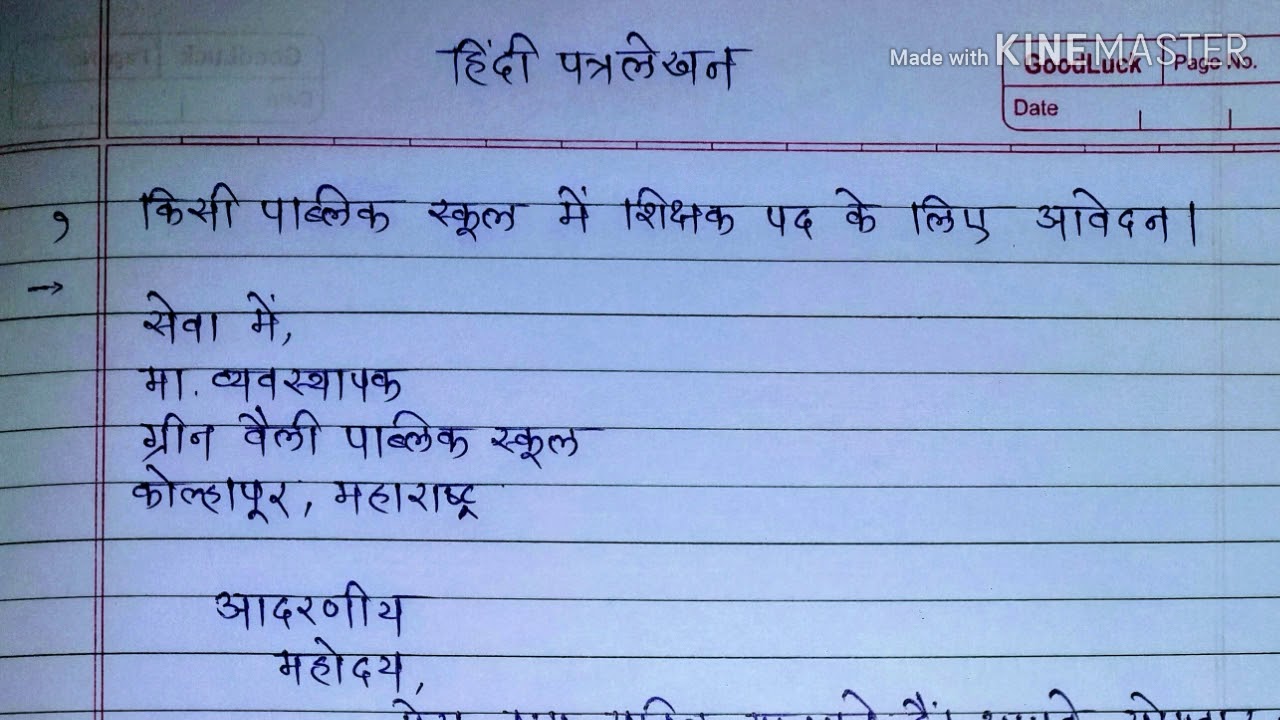 हिंदी पत्रलेखन
Made with KINEMASTER
GoodLuck Page No.
Date
१ किसी पाब्लिक स्कूल में शिक्षक पद के लिए आवेदन।
→
सेवा में,
मा. व्यवस्थापक
ग्रीन वैली पाब्लिक स्कूल
कोल्हापूर, महाराष्ट्र
आदरणीय
महोदय,